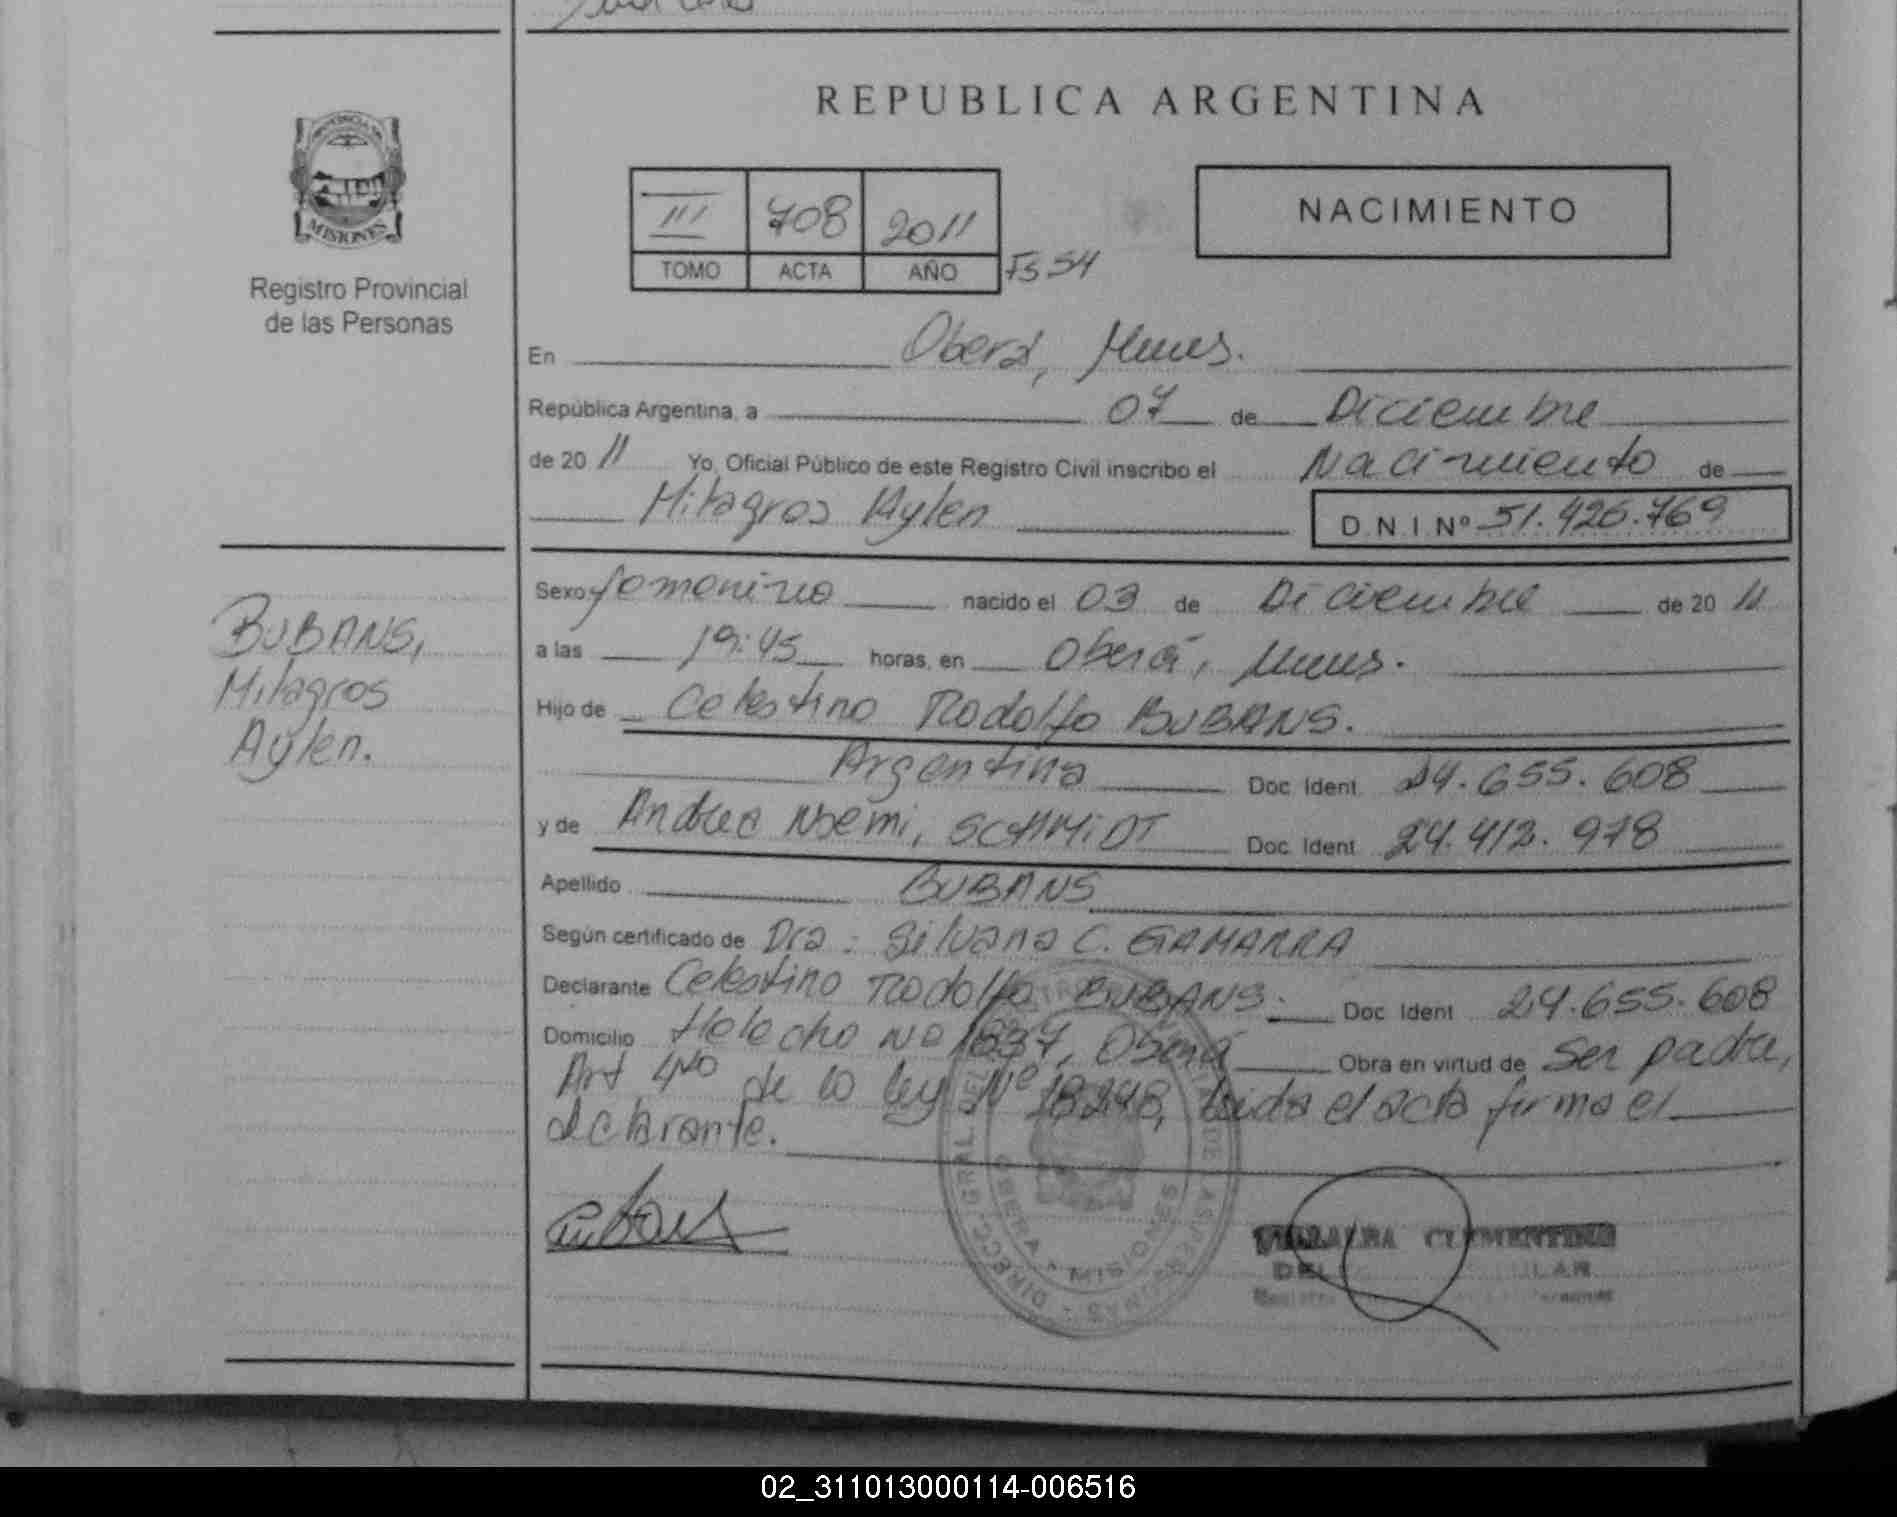 REPUBLICA ARGENTINA
PROVINCIA DE
MISIONES
Registro Provincial
de las Personas
III 708 2011
TOMO ACTA AÑO Fs 54
NACIMIENTO
En Oberá, Mnes.
República Argentina, a 07 de Diciembre
de 20 11 Yo, Oficial Público de este Registro Civil inscribo el Nacimiento de
Milagros Aylen D.N.I. Nº 51.426.769
BUBANS,
Milagros
Aylen.
Sexo femenino nacido el 03 de Diciembre de 20 11
a las 19:45 horas, en Oberá, Mnes.
Hijo de Celestino Rodolfo BUBANS.
Argentina Doc. Ident. 24.655.608
y de Andrea Noemi, SCHMIDT Doc. Ident. 24.412.978
Apellido BUBANS
Según certificado de Dra: Silvana C. GAMARRA
Declarante Celestino Rodolfo BUBANS. Doc. Ident. 24.655.608
Domicilio Helecho Nº 1837, Oberá Obra en virtud de Ser padre,
Art 4to de la ley Nº 18248, leida el acta firma el
declarante.
OBERA * MISIONES
VILLALBA CLEMENTINO
02_311013000114-006516